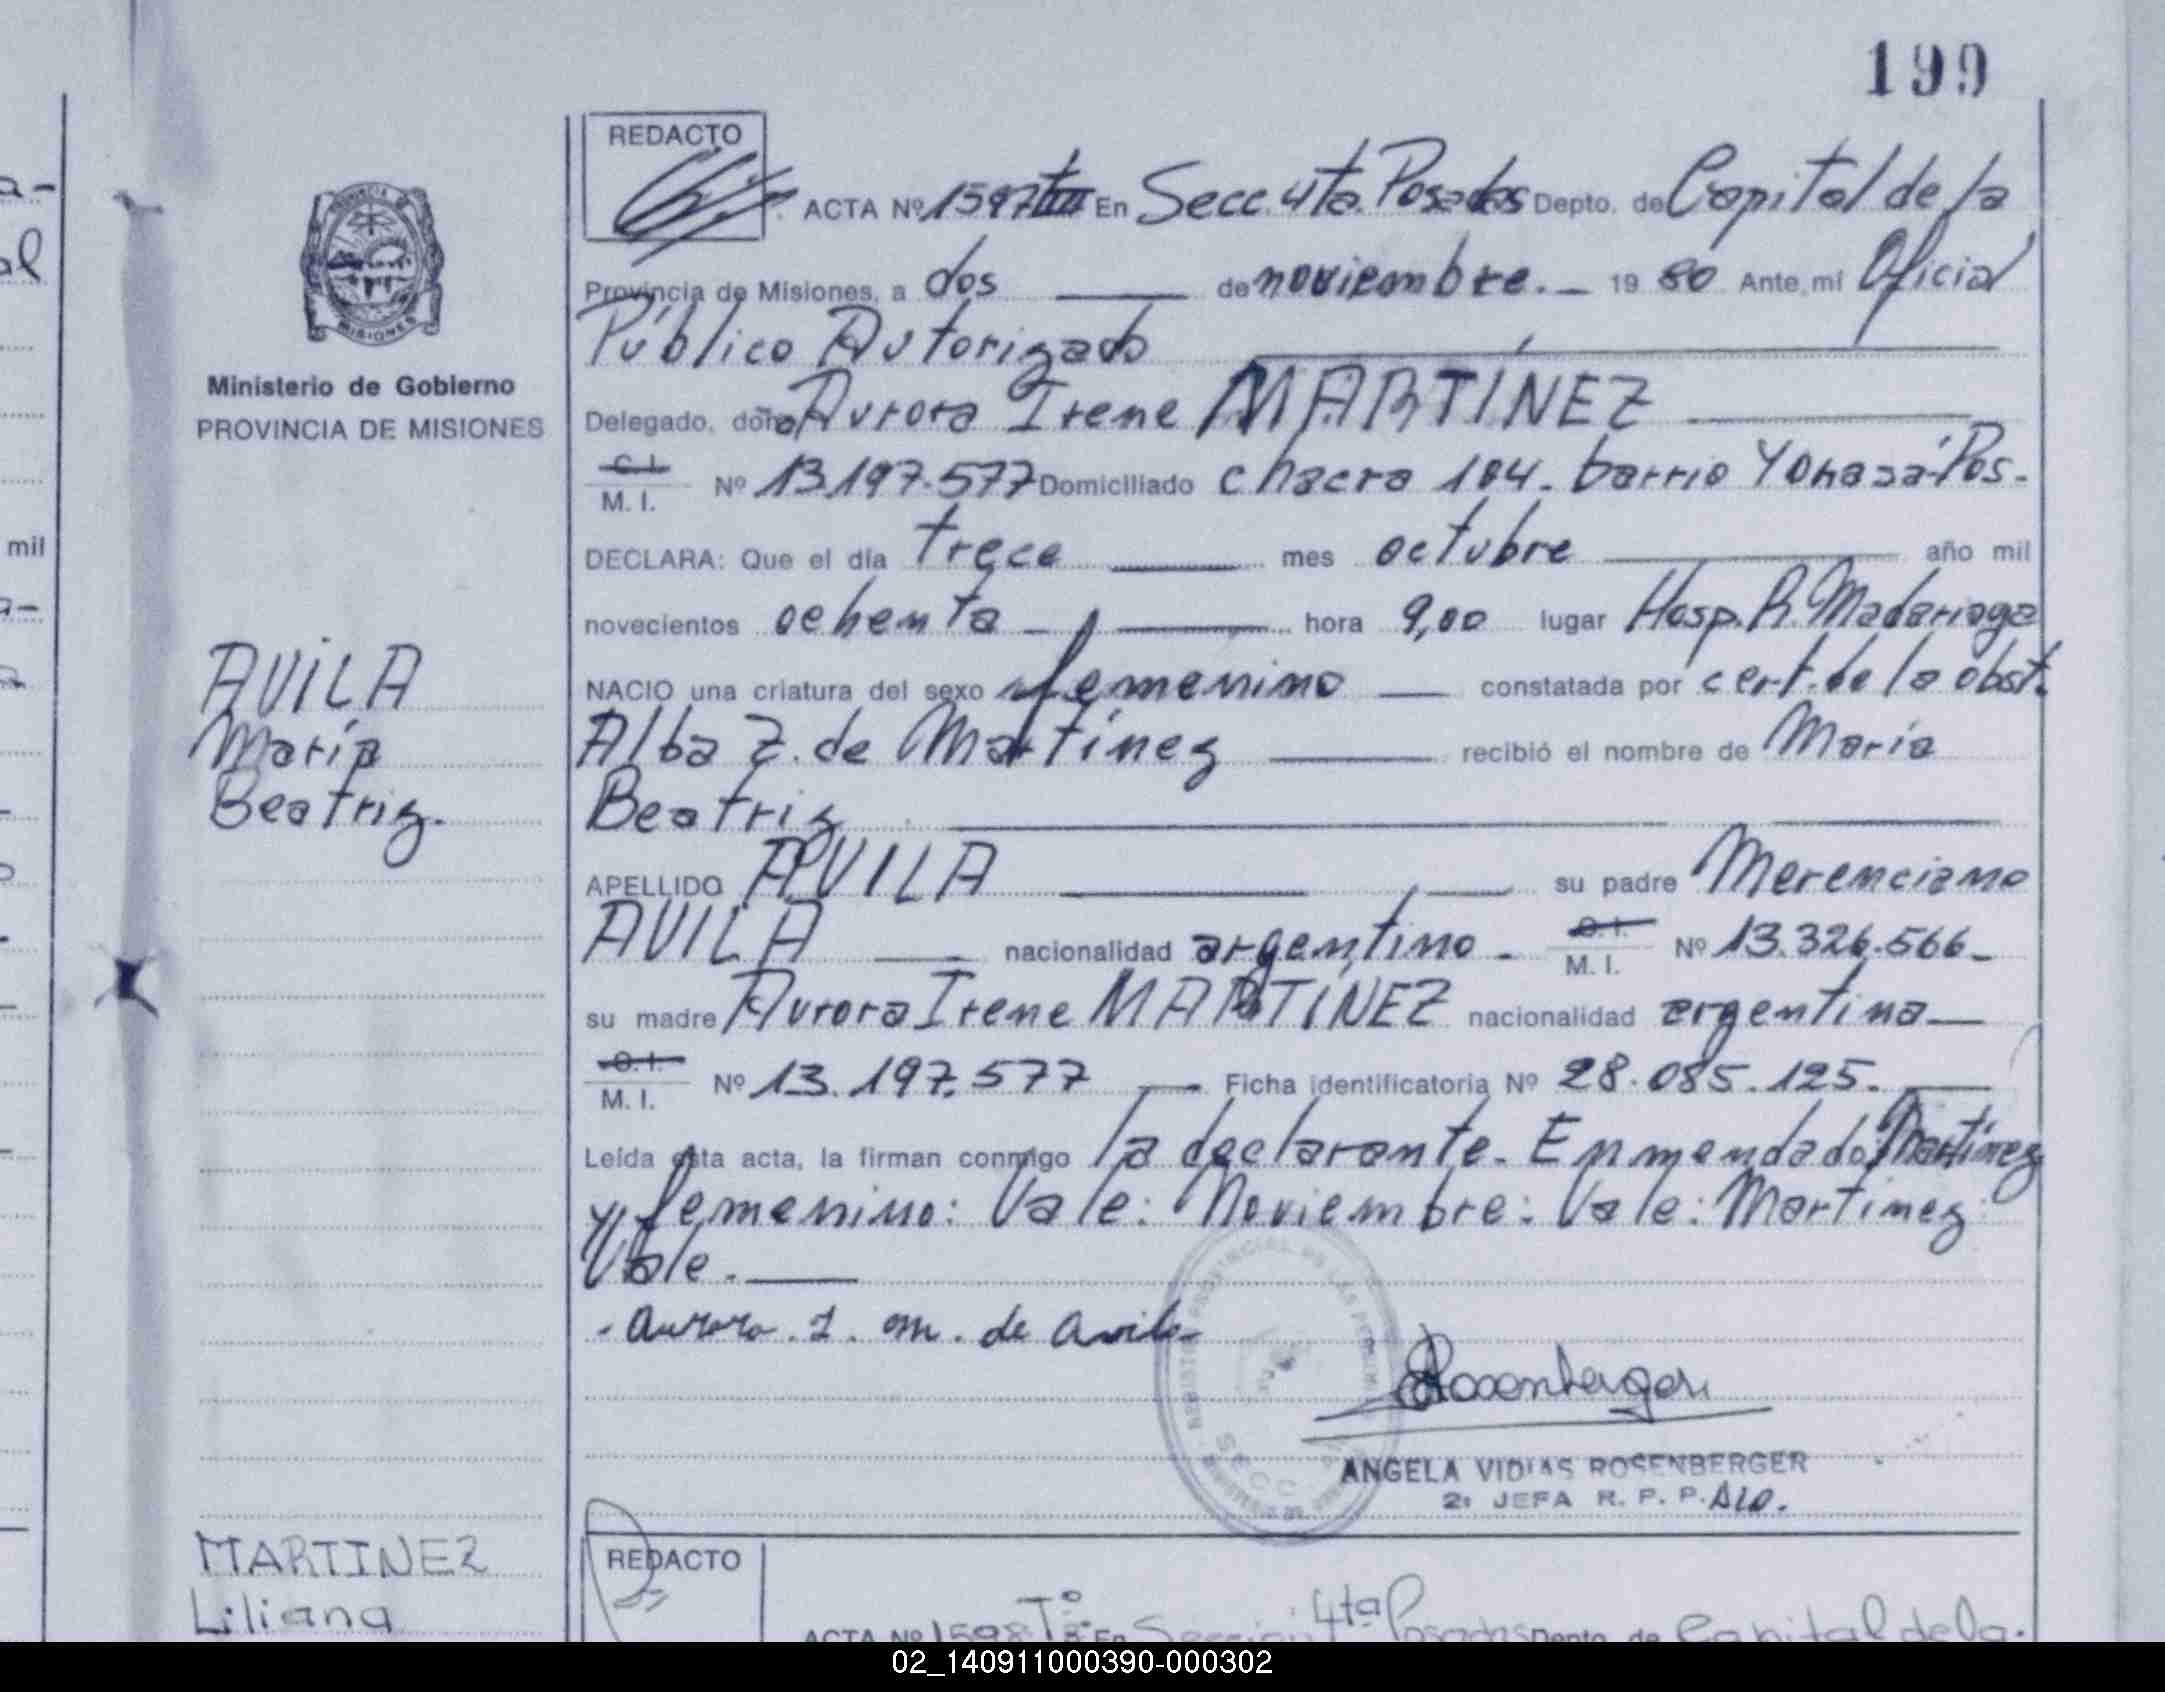 199
REDACTO
ACTA Nº 1597 En Secc. 4ta. Posadas Depto. de Capital de la
Provincia de Misiones, a dos de noviembre. 19 80 Ante mi Oficial
Público Autorizado
Delegado, doña Aurora Irene MARTÍNEZ
C. I.
M. I. Nº 13.197.577 Domiciliado chacra 104. barrio Pos.
DECLARA: Que el día trece mes octubre año mil
novecientos ochenta hora 9,00 lugar Hosp. R. Madariaga
NACIO una criatura del sexo femenino constatada por cert. de la obst.
Alba Z. de Martínez recibió el nombre de María
Beatriz
APELLIDO AVILA su padre Merenciano
AVILA nacionalidad argentino. C. I.
M. I. Nº 13.326.566
su madre Aurora Irene MARTÍNEZ nacionalidad argentina
C. I.
M. I. Nº 13.197.577 Ficha identificatoria Nº 28.085.125.
Leída esta acta, la firman conmigo la declarante. Enmendado: Martínez
y femenino: Vale: Noviembre: Vale: Martínez
Vale.
Aurora. I. M. de Avila
Rosenberger
ANGELA VIDIAS ROSENBERGER
2ª JEFA R. P. P.
Ministerio de Gobierno
PROVINCIA DE MISIONES
AVILA
María
Beatriz.
MARTINEZ
Liliana
REDACTO
ACTA Nº 1598 Tº En Sección 4ta Posadas Depto. de Capital de la.
a-
al
mil
02_140911000390-000302